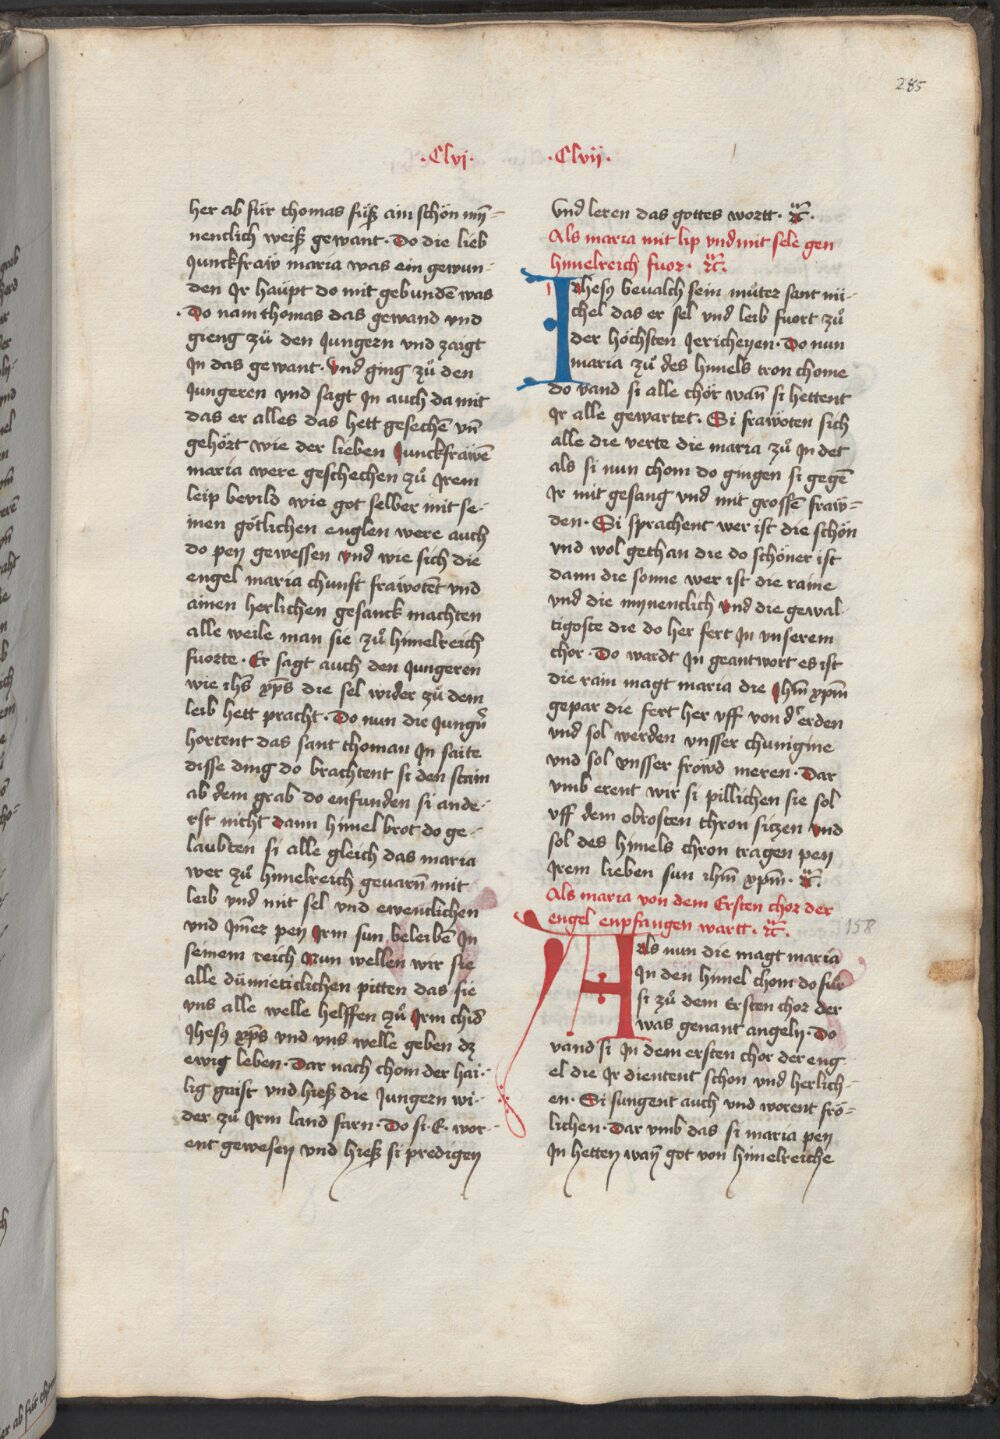 285
·Clvj·
·Clvij·
her ab für thomas füß ain schön my̅-
nenclich weiß gewant · Do die lieb
Junckfraw maria was ein gewun-
den Jr haüpt do mit gebundē was
· Do nam thomas das gewand vnd
gieng zů den Jungern vnd zaigt
Jn das gewant · Vnd ging zů den
Jungeren vnd sagt Jn auch da mit
das er alles das hett gesechē vn̄
gehört wie der lieben Junckfrawē
maria were geschechen zů Jrem
leip bevild wie got selber mit se-
inen götlichen englen were auch
do pey gewessen vnd wie sich die
engel maria chunft frawotēt vnd
ainen herlichen gesanck machten
alle weile man sie zů himelreich
fuorte · Er sagt auch den Jungeren
wie ihs̄ xp̄s die sel wider zů dem
leib hett pracht · Do nun die Jungn̄
hortent das sant thoman Jn saite
disse ding do brachtent si den stain
ab dem grab do enfunden si ande-
rst nicht dann himel brot do ge-
laubten si alle gleich das maria
wer zů himelreich gevarn̄ mit
leib vnd mit sel vnd ewenclichen
vnd Jm̄er pey Jrm sun beleibē Jn
seinem reich Nun wellen wir sie
alle dümieticlichen pitten das sie
vns alle welle helffen zů Jrm chid
Jhesy xp̄s vnd vns welle geben dz
ewig leben · Dar nach chom der hai-
lig gaist vnd hieß die Jungern wi-
der zů Jrm land farn · Do si · E · wor-
ent gewesen vnd hieß si predigen
Vnd leren das gottes wortt · ꝛc̄ ·
Als maria mit lip vnd mit sele gen
himelreich fuor · ꝛc̄ ·
Jhesy bevalch sein můter sant mi-
chel das er sel vnd leib fuort zů
der höchsten Jericheyen · Do nun
maria zů des himels tron chome
do vand si alle chör wan̄ si hettent
Jr alle gewartet · Si frawoten sich
alle die verte die maria zů Jn det
als si nun chom do gingen si gegē
Jr mit gesang vnd mit grossē fraw-
den · Si sprachent wer ist die schön
vnd wol gethan die do schöner ist
dann die sonne wer ist die raine
vnd die mynenclich vnd die gewal-
tigoste die do her fert Jn vnserem
chor · Do wardt Jn geantwort es ist
die rain magt maria die Jhm̄ xpm̄
gepar die fert her vff von d' erden
vnd sol werden vnsser chunigine
vnd sol vnsser fröwd meren · Dar
vmb erent wir si pillichen sie sol
vff dem obrosten thron sitzen vnd
sol des himels chron tragen pey
Jrem lieben sun ihm̄ xpm̄ · ꝛc̄ ·
Als maria von dem Ersten chor der
engel enpfangen wartt · ꝛc̄ ·
158
Als nun die magt maria
Jn den himel chom do fůr
si zů dem Ersten chor der
was genant angely · Do
vand si Jn dem ersten chor der eng-
el die Jr dientent schon vnd herlich-
en · Si sungent auch vnd worent frö-
lichen · Dar vmb das si maria pey
Jn hetten wan̄ got von himelreiche